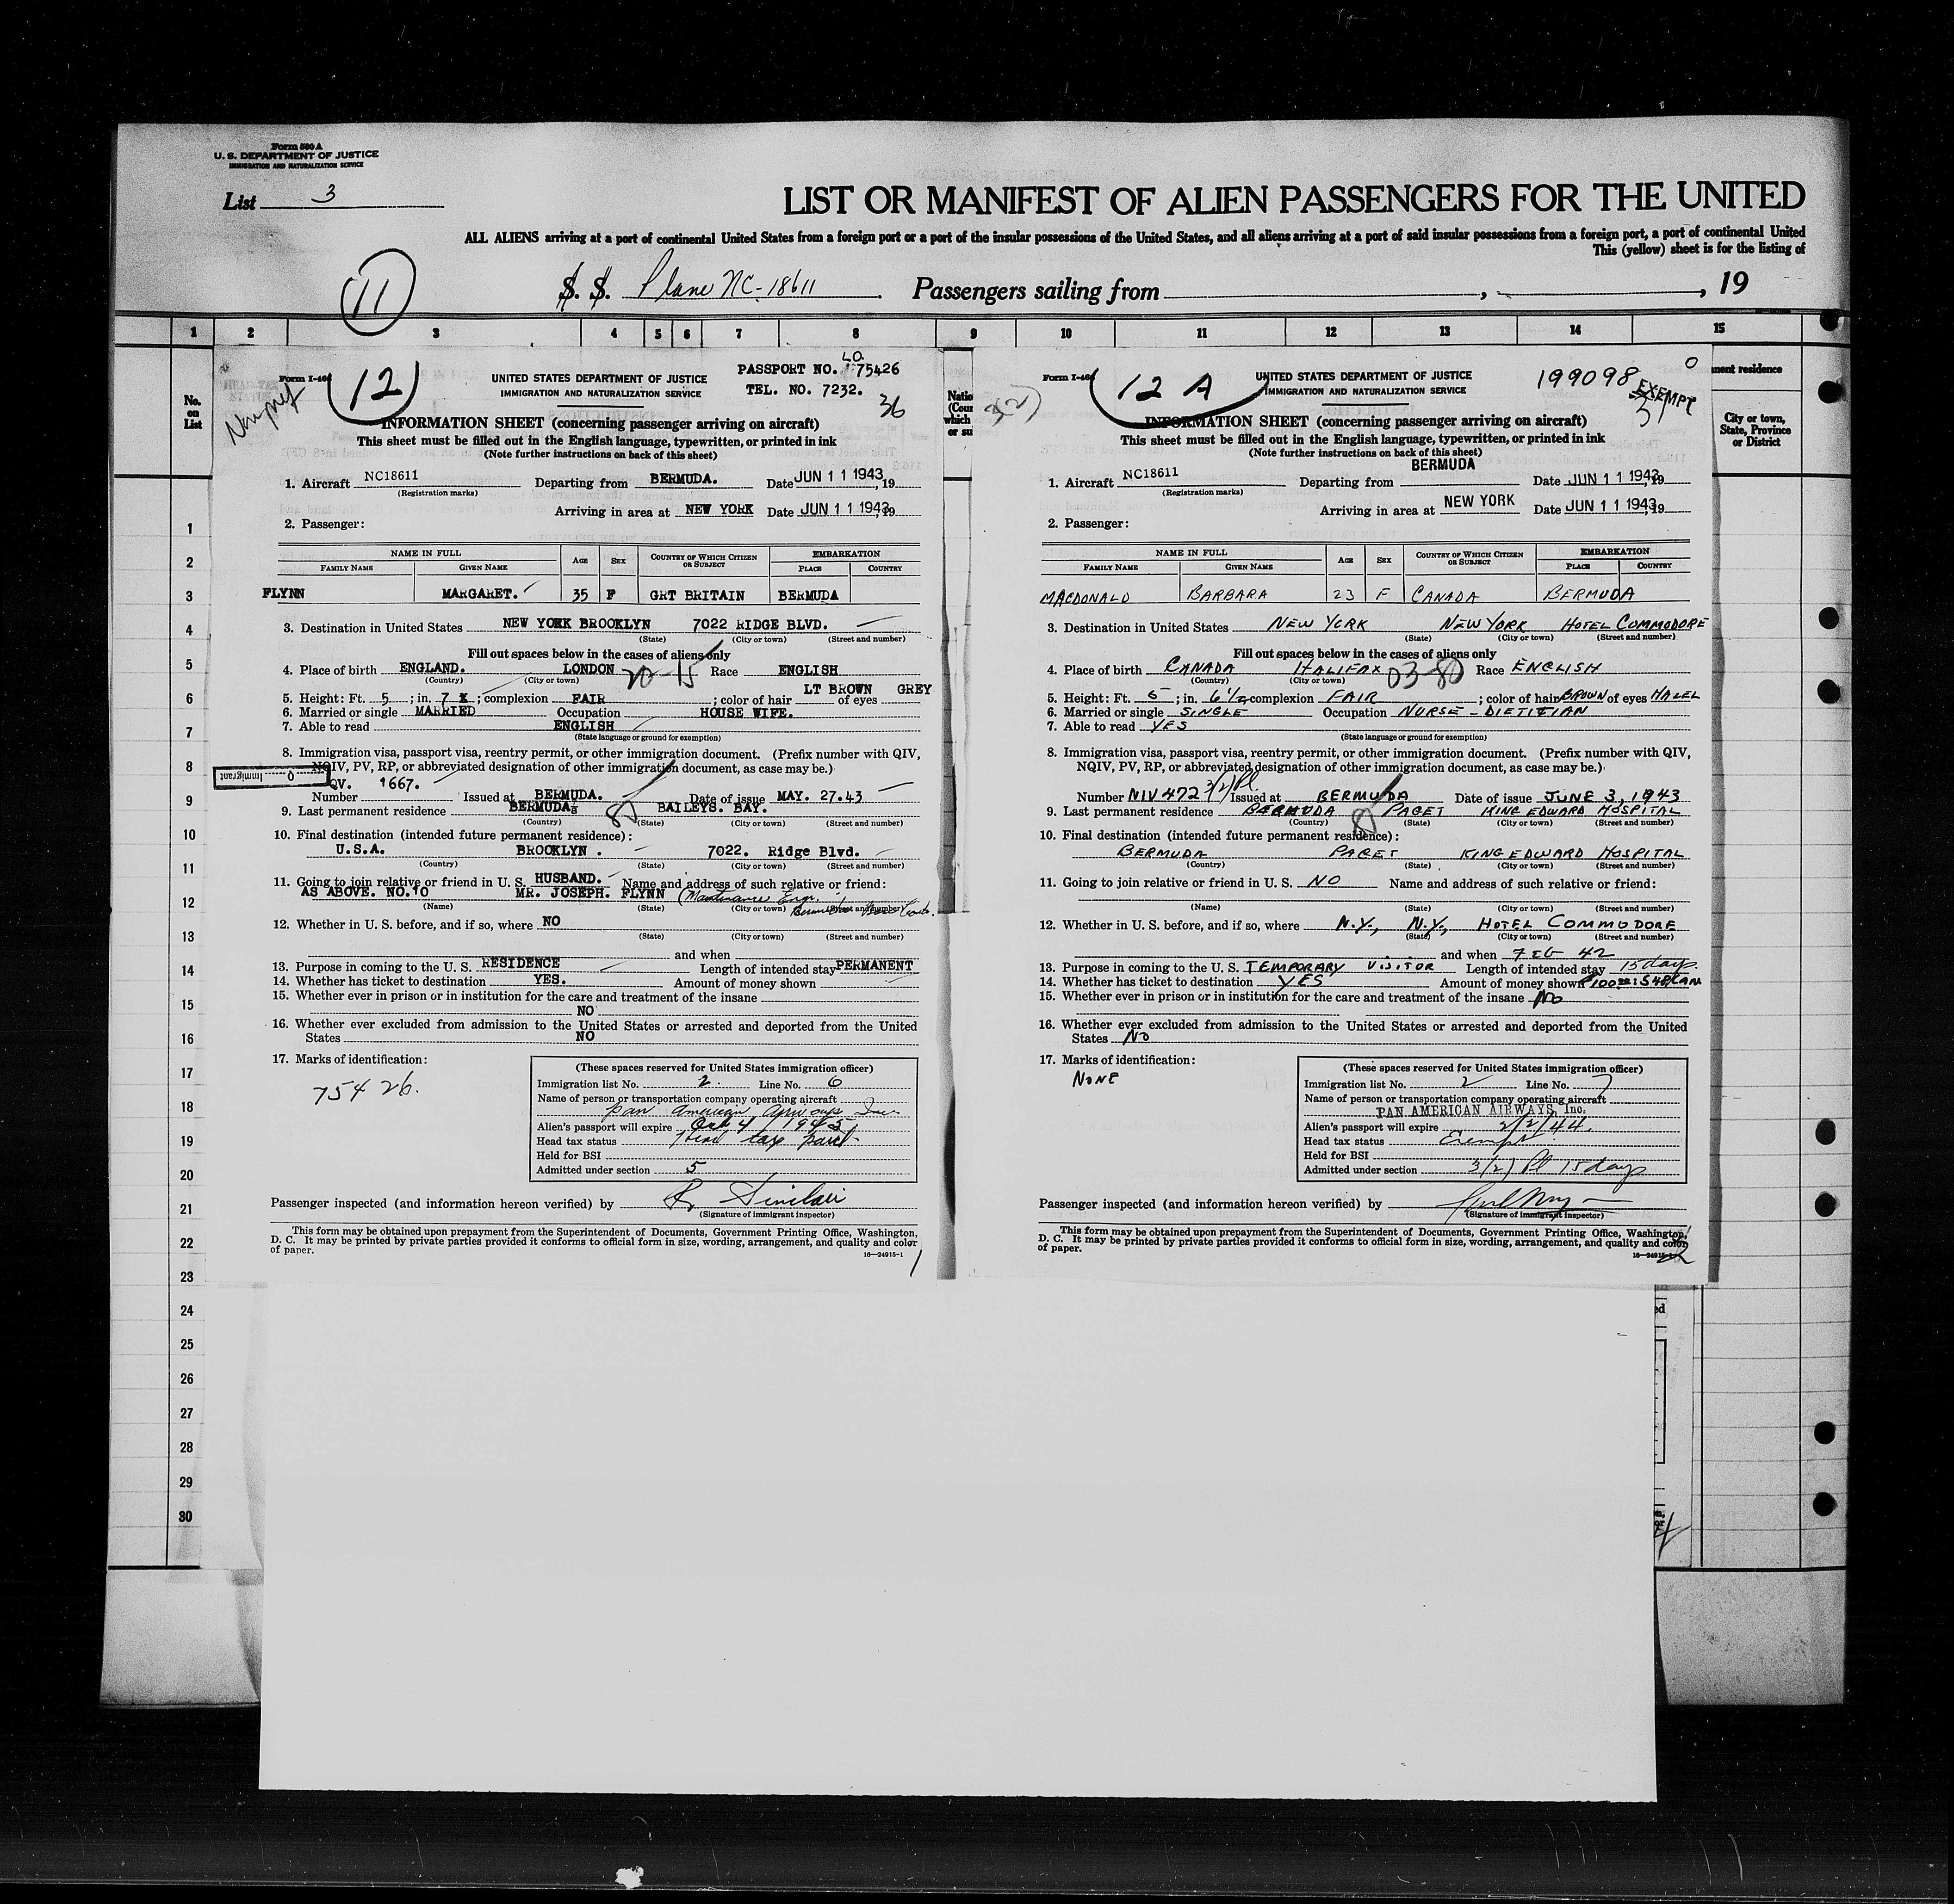 Form 500 A
U. S. DEPARTMENT OF JUSTICE
IMMIGRATION AND NATURALIZATION SERVICE
List 3
LIST OR MANIFEST OF ALIEN PASSENGERS FOR THE UNITED
ALL ALIENS arriving at a port of continental United States from a foreign port or a port of the insular possessions of the United States, and all aliens arriving at a port of said insular possessions from a foreign port, a port of continental United
This (yellow) sheet is for the listing of
11
S. S. Plane NC-18611 Passengers sailing from , , 19
1 2 3 4 5 6 7 8 9 10 11 12 13 14 15
No. on List
12
Form I-46
UNITED STATES DEPARTMENT OF JUSTICE
IMMIGRATION AND NATURALIZATION SERVICE
LO.
PASSPORT NO. 75426
TEL. NO. 7232.
36
INFORMATION SHEET (concerning passenger arriving on aircraft)
This sheet must be filled out in the English language, typewritten, or printed in ink
(Note further instructions on back of this sheet)
1. Aircraft NC18611 Departing from BERMUDA. Date JUN 11 1943, 19
(Registration marks)
Arriving in area at NEW YORK Date JUN 11 1943, 19
2. Passenger:
NAME IN FULL AGE SEX COUNTRY OF WHICH CITIZEN OR SUBJECT EMBARKATION
FAMILY NAME GIVEN NAME PLACE COUNTRY
FLYNN MARGARET. 35 F GRT BRITAIN BERMUDA
3. Destination in United States NEW YORK BROOKLYN 7022 RIDGE BLVD.
(State) (City or town) (Street and number)
Fill out spaces below in the cases of aliens only
4. Place of birth ENGLAND. LONDON 20-15 Race ENGLISH
(Country) (City or town)
5. Height: Ft. 5; in. 7; complexion FAIR; color of hair LT BROWN of eyes GREY
6. Married or single MARRIED Occupation HOUSE WIFE.
7. Able to read ENGLISH
(State language or ground for exemption)
8. Immigration visa, passport visa, reentry permit, or other immigration document. (Prefix number with QIV,
NQIV, PV, RP, or abbreviated designation of other immigration document, as case may be.)
Q Immigrant
Number QV. 1667. Issued at BERMUDA. Date of issue MAY. 27.43
9. Last permanent residence BERMUDA. BAILEYS. BAY.
(Country) (State) (City or town) (Street and number)
10. Final destination (intended future permanent residence):
U.S.A. BROOKLYN . 7022. Ridge Blvd.
(Country) (State) (City or town) (Street and number)
11. Going to join relative or friend in U. S. HUSBAND. Name and address of such relative or friend:
AS ABOVE. NO.10 MR. JOSEPH. FLYNN (Maintenance Engr.
(Name) (State) (City or town) (Street and number)
12. Whether in U. S. before, and if so, where NO
(State) (City or town) (Street and number)
and when
13. Purpose in coming to the U. S. RESIDENCE Length of intended stay PERMANENT
14. Whether has ticket to destination YES. Amount of money shown
15. Whether ever in prison or in institution for the care and treatment of the insane
NO
16. Whether ever excluded from admission to the United States or arrested and deported from the United
States NO
17. Marks of identification:
75426.
(These spaces reserved for United States immigration officer)
Immigration list No. 2. Line No. 6
Name of person or transportation company operating aircraft
Pan American Airways Inc
Alien's passport will expire Oct 4 1945
Head tax status Head tax paid
Held for BSI
Admitted under section 5
Passenger inspected (and information hereon verified) by R. Sinclair
(Signature of immigrant inspector)
This form may be obtained upon prepayment from the Superintendent of Documents, Government Printing Office, Washington,
D. C. It may be printed by private parties provided it conforms to official form in size, wording, arrangement, and quality and color
of paper.
16—24915-1
1
12 A
Form I-46
UNITED STATES DEPARTMENT OF JUSTICE
IMMIGRATION AND NATURALIZATION SERVICE
199098
EXEMPT
INFORMATION SHEET (concerning passenger arriving on aircraft)
This sheet must be filled out in the English language, typewritten, or printed in ink
(Note further instructions on back of this sheet)
1. Aircraft NC18611 Departing from BERMUDA Date JUN 11 1943, 19
(Registration marks)
Arriving in area at NEW YORK Date JUN 11 1943, 19
2. Passenger:
NAME IN FULL AGE SEX COUNTRY OF WHICH CITIZEN OR SUBJECT EMBARKATION
FAMILY NAME GIVEN NAME PLACE COUNTRY
MACDONALD BARBARA 23 F CANADA BERMUDA
3. Destination in United States NEW YORK NEW YORK HOTEL COMMODORE
(State) (City or town) (Street and number)
Fill out spaces below in the cases of aliens only
4. Place of birth CANADA HALIFAX 03-80 Race ENGLISH
(Country) (City or town)
5. Height: Ft. 5; in. 6½; complexion FAIR; color of hair BROWN of eyes HAZEL
6. Married or single SINGLE Occupation NURSE - DIETITIAN
7. Able to read YES
(State language or ground for exemption)
8. Immigration visa, passport visa, reentry permit, or other immigration document. (Prefix number with QIV,
NQIV, PV, RP, or abbreviated designation of other immigration document, as case may be.)
Number NIV 472 3(2) Pl. Issued at BERMUDA Date of issue JUNE 3, 1943
9. Last permanent residence BERMUDA PAGET KING EDWARD HOSPITAL
(Country) (State) (City or town) (Street and number)
10. Final destination (intended future permanent residence):
BERMUDA PAGET KING EDWARD HOSPITAL
(Country) (State) (City or town) (Street and number)
11. Going to join relative or friend in U. S. NO Name and address of such relative or friend:
(Name) (State) (City or town) (Street and number)
12. Whether in U. S. before, and if so, where N.Y., N.Y., HOTEL COMMODORE
(State) (City or town) (Street and number)
and when FEB 42
13. Purpose in coming to the U. S. TEMPORARY VISITOR Length of intended stay 15 days.
14. Whether has ticket to destination YES Amount of money shown
15. Whether ever in prison or in institution for the care and treatment of the insane No
16. Whether ever excluded from admission to the United States or arrested and deported from the United
States No
17. Marks of identification:
NONE
(These spaces reserved for United States immigration officer)
Immigration list No. 2 Line No. 7
Name of person or transportation company operating aircraft
PAN AMERICAN AIRWAYS, Inc.
Alien's passport will expire 2/2/44.
Head tax status Exempt
Held for BSI
Admitted under section 3(2) Pl 15 days
Passenger inspected (and information hereon verified) by
(Signature of immigrant inspector)
This form may be obtained upon prepayment from the Superintendent of Documents, Government Printing Office, Washington,
D. C. It may be printed by private parties provided it conforms to official form in size, wording, arrangement, and quality and color
of paper.
2
nent residence
City or town,
State, Province
or District
1
2
3
4
5
6
7
8
9
10
11
12
13
14
15
16
17
18
19
20
21
22
23
24
25
26
27
28
29
30